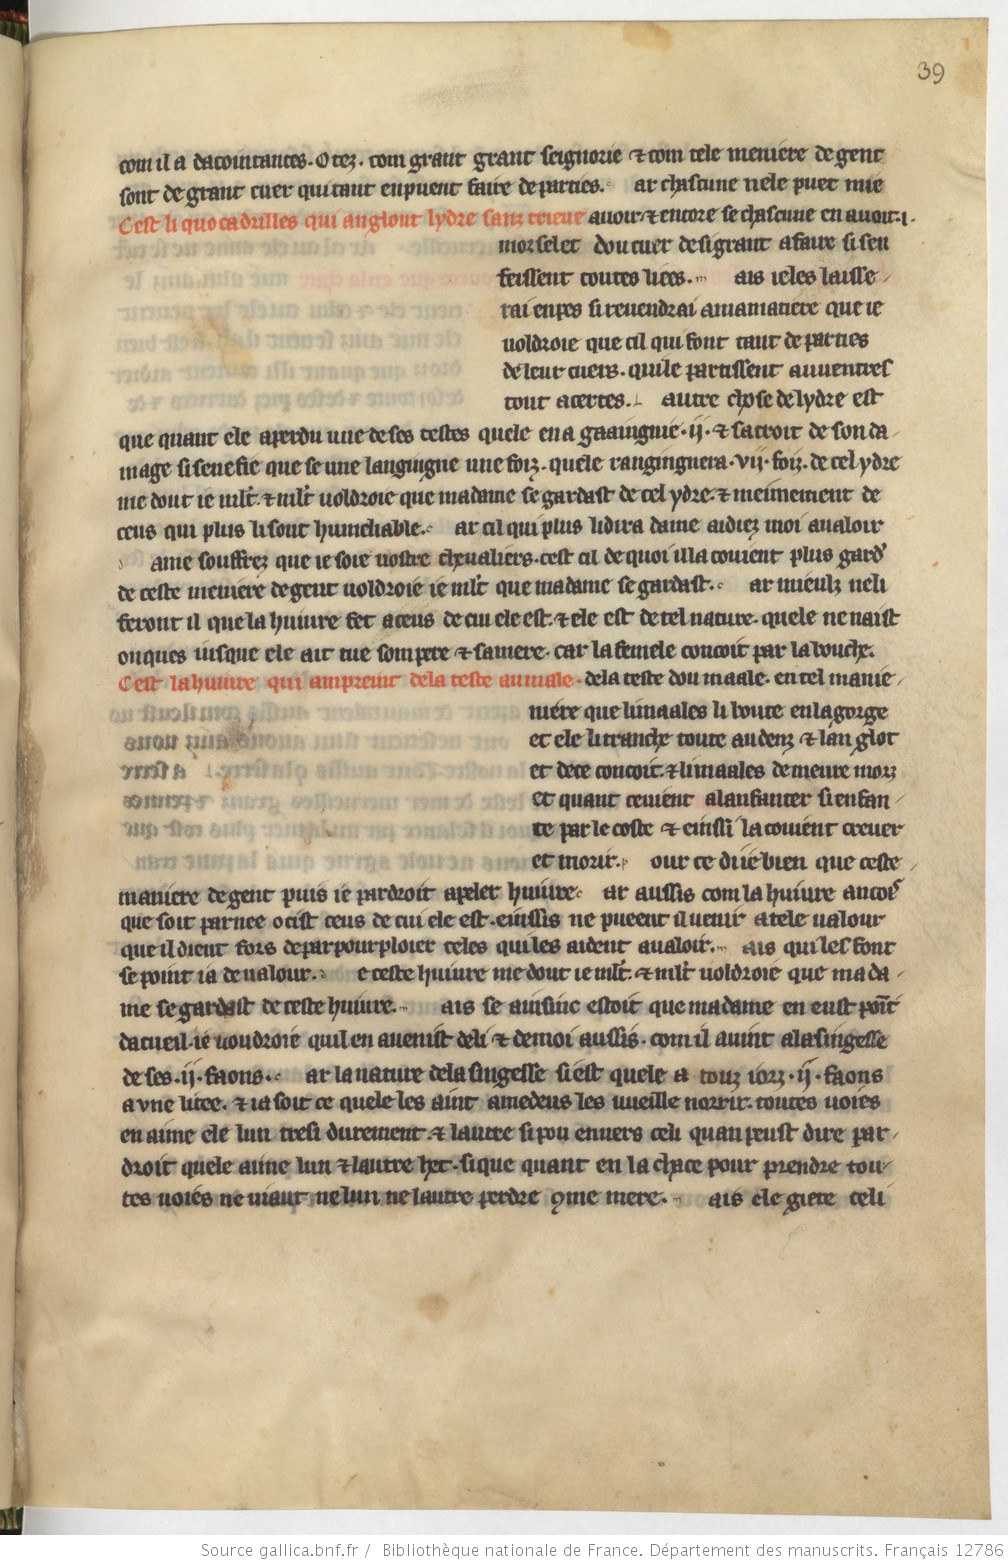 39
com il a dacointances. Otez. com grant grant seignorie ⁊ com tele meniere de gent
sont de grant cuer qui tant en puent faire de parties. ar chascune nele puet mie
Cest li quocadrilles qui anglout lydre sanz trieue auoir. ⁊ encore se chascune en auoit .i.
morselet dou cuer de si grant afaire si sen
feissent toutes liees. ais ie les laisse
rai en pes si reuendrai a ma matiere que ie
uoldroie que cil qui font tant de parties
de leur cuers. qui le partissent au uentres
tout a certes. autre chose de lydre est
que quant ele a perdu une de ses testes quele en a gaaingnie .ij. ⁊ sacroit de son da
mage si senefie que se une languigne une foiz. quele ranginguera .vij. foiz. de cel ydre
me dout ie mlt. ⁊ mlt uoldroie que ma dame se gardast de cel ydre. ⁊ meimement de
ceus qui plus li sont humeliable. ar cil qui plus li dira dame aidiez moi a ualoir
ame souffrez que ie soie uostre cheualiers. cest cil de quoi il la couient plus gard
de ceste meniere de gent uoldroie ie mlt que ma dame se gardast. ar mieulz ne li
feront il que la huiure fet a ceus de cui ele est. ⁊ ele est de tel nature. quele ne naist
onques iusque ele ait tue son pere ⁊ sa mere. car la femele concoit par la bouche.
Cest la huiure qui amprent de la teste au male. de la teste dou maale. en tel manie
niere que li maales li boute en la gorge
et ele li tranche toute au denz ⁊ langlot
et de ce concoit. ⁊ li maales demeure morz
et quant ce uient al anfanter si enfan
te par le coste ⁊ einssi la couient creuer
et morir. our ce di ie bien que ceste
maniere de gent puis ie par droit apeler huiure. ar aussis com la huiure ancois
que soit par nee ocist ceus de cui ele est. einssis ne pueent il uenir a tele ualour
que il dient fors de par pourploier celes qui les aident a ualoir. ais qui les font
se point ia de ualour. e ceste huiure me dout ie mlt. ⁊ mlt uoldroie que ma da
me se gardast de ceste huiure. ais se ainsinc estoit que ma dame en eust point
dacueil. ie uoudroie quil en auenist de li ⁊ de moi aussis. com il auint a la singesse
de ses .ij. faons. ar la nature de la singesse si est quele a touz iorz .ij. faons
a vne litee. ⁊ ia soit ce quele les aint amedeus les uueille norrir. toutes uoies
en aime ele lun tresi durement. ⁊ lautre si pou enuers celi quan peust dire par
droit quele aime lun ⁊ lautre het. si que quant en la chace pour prendre tou
tes uoies ne uiaut ne lun ne lautre perdre ꝯme mere. ais ele giete celi
Source gallica.bnf.fr / Bibliothèque nationale de France. Département des manuscrits. Français 12786